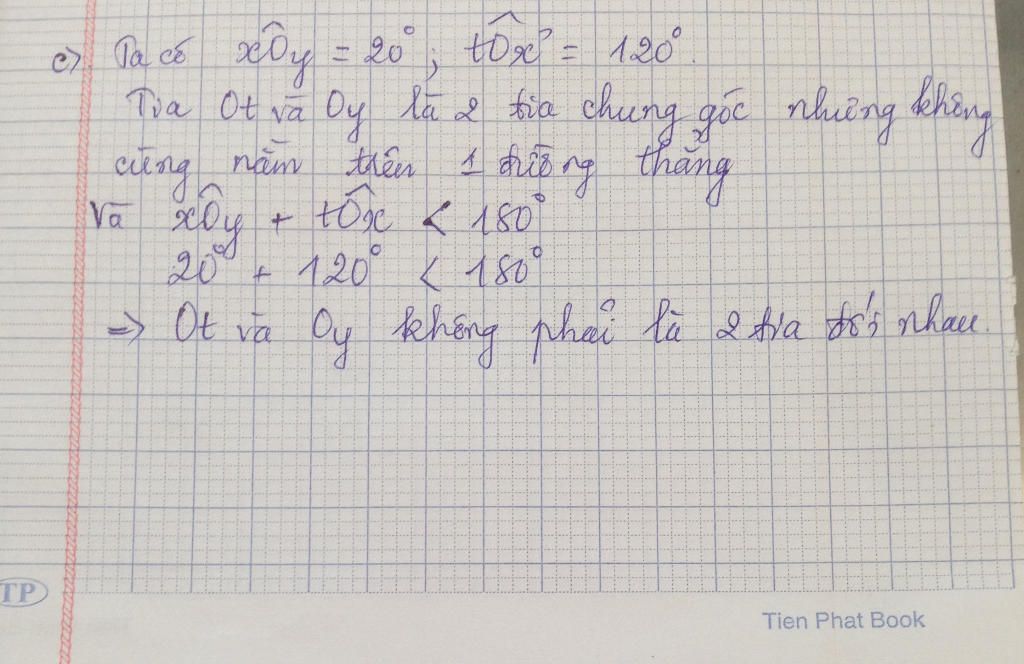 c) Ta có xÔy = 20°; tÔx = 120°.
Tia Ot và Oy là 2 tia chung gốc nhưng không
cùng nằm trên 1 đường thẳng
Và xÔy + tÔx < 180°
20° + 120° < 180°
=> Ot và Oy không phải là 2 tia đối nhau.
TP
Tien Phat Book